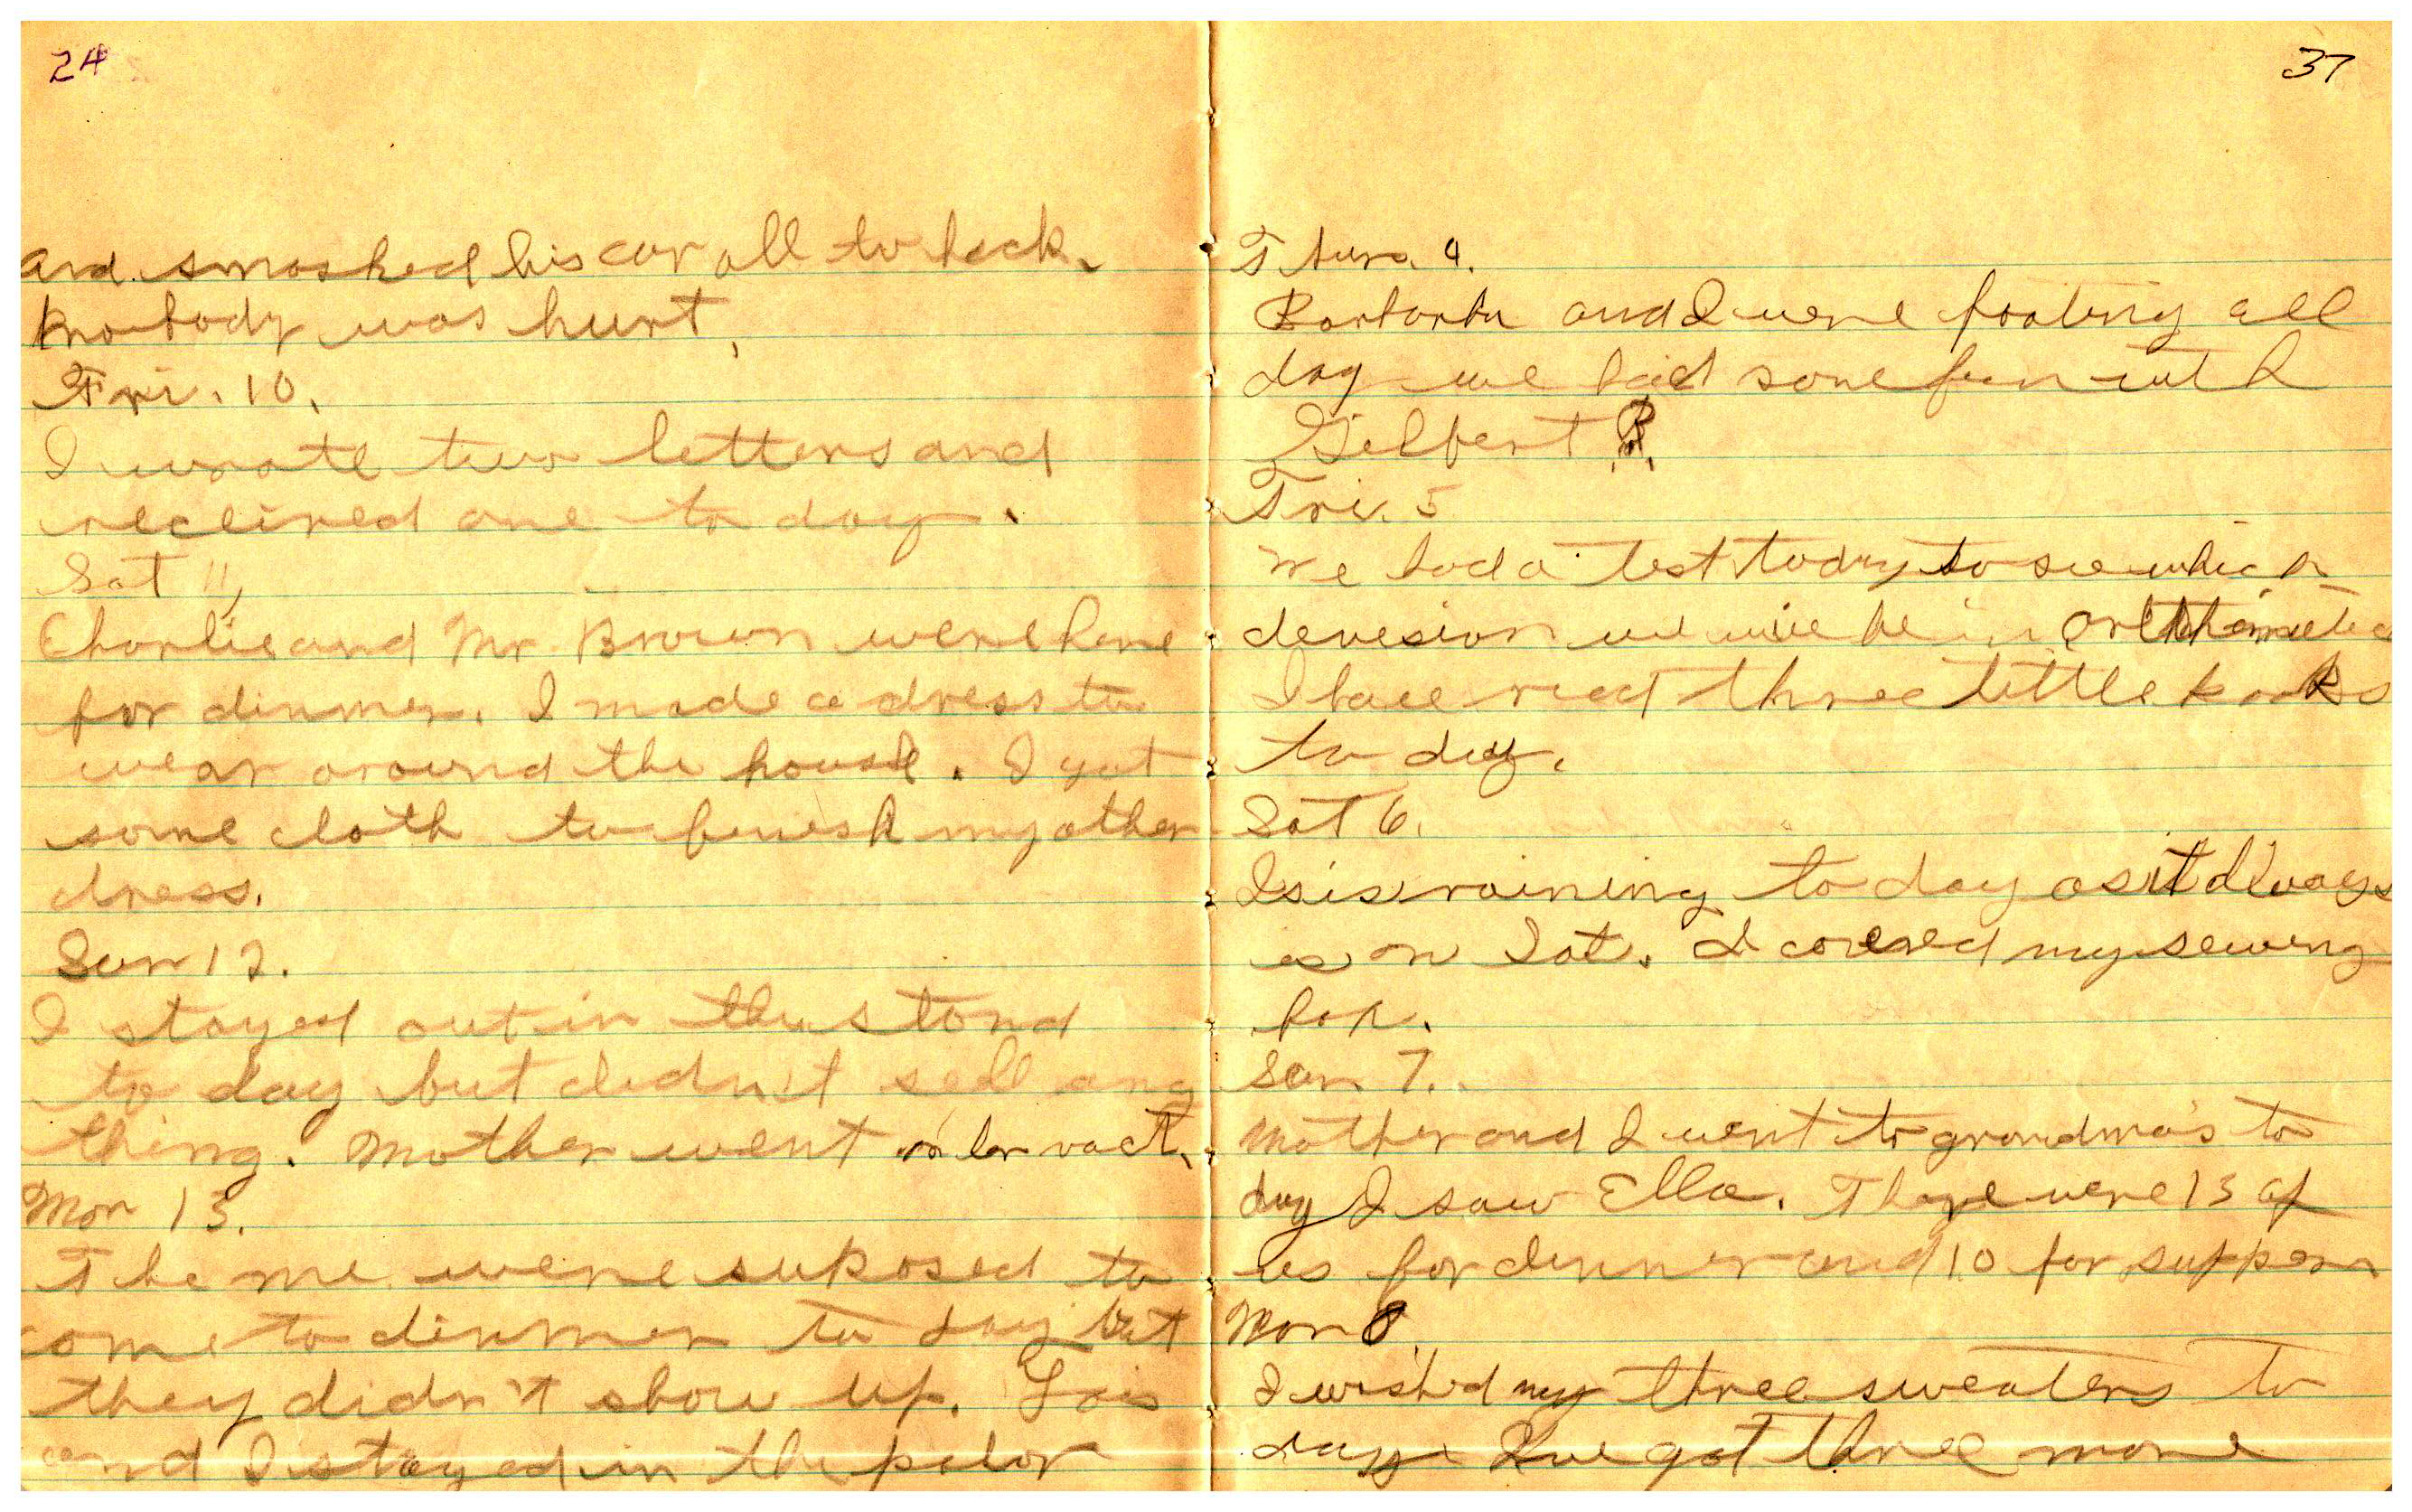 24
and smashed his car all to heck.
knobody was hurt,
Fri. 10.
I wrote two letters and
received one to day.
Sat 11,
Charlie and Mr. Brown were here
for dinner. I made a dress to
wear around the house. I got
some cloth to finish my other
dress.
Sun 12.
I stayed out in the stand
to day but didn't sell any
thing. Mother went on her vact.
Mon 13.
The me were suposed to
come to dinner to day but
they didn't show up. Lois
and I stayed in the palor
37
Thurs. 4.
Barbarba and I were fooling all
day we had some fun with
Gilbert R.
Fri. 5
We had a test today to see which
devesion we will be in arithemetic
I have read three little books
to day.
Sat 6.
Isis raining to day as it always
is on Sat. I covered my sewing
box.
Sun 7.
Mother and I went to grandma's to
day I saw Ella. There were 13 of
us for dinner and 10 for supper
Mon 8.
I washed my three sweaters to
day I've got three more